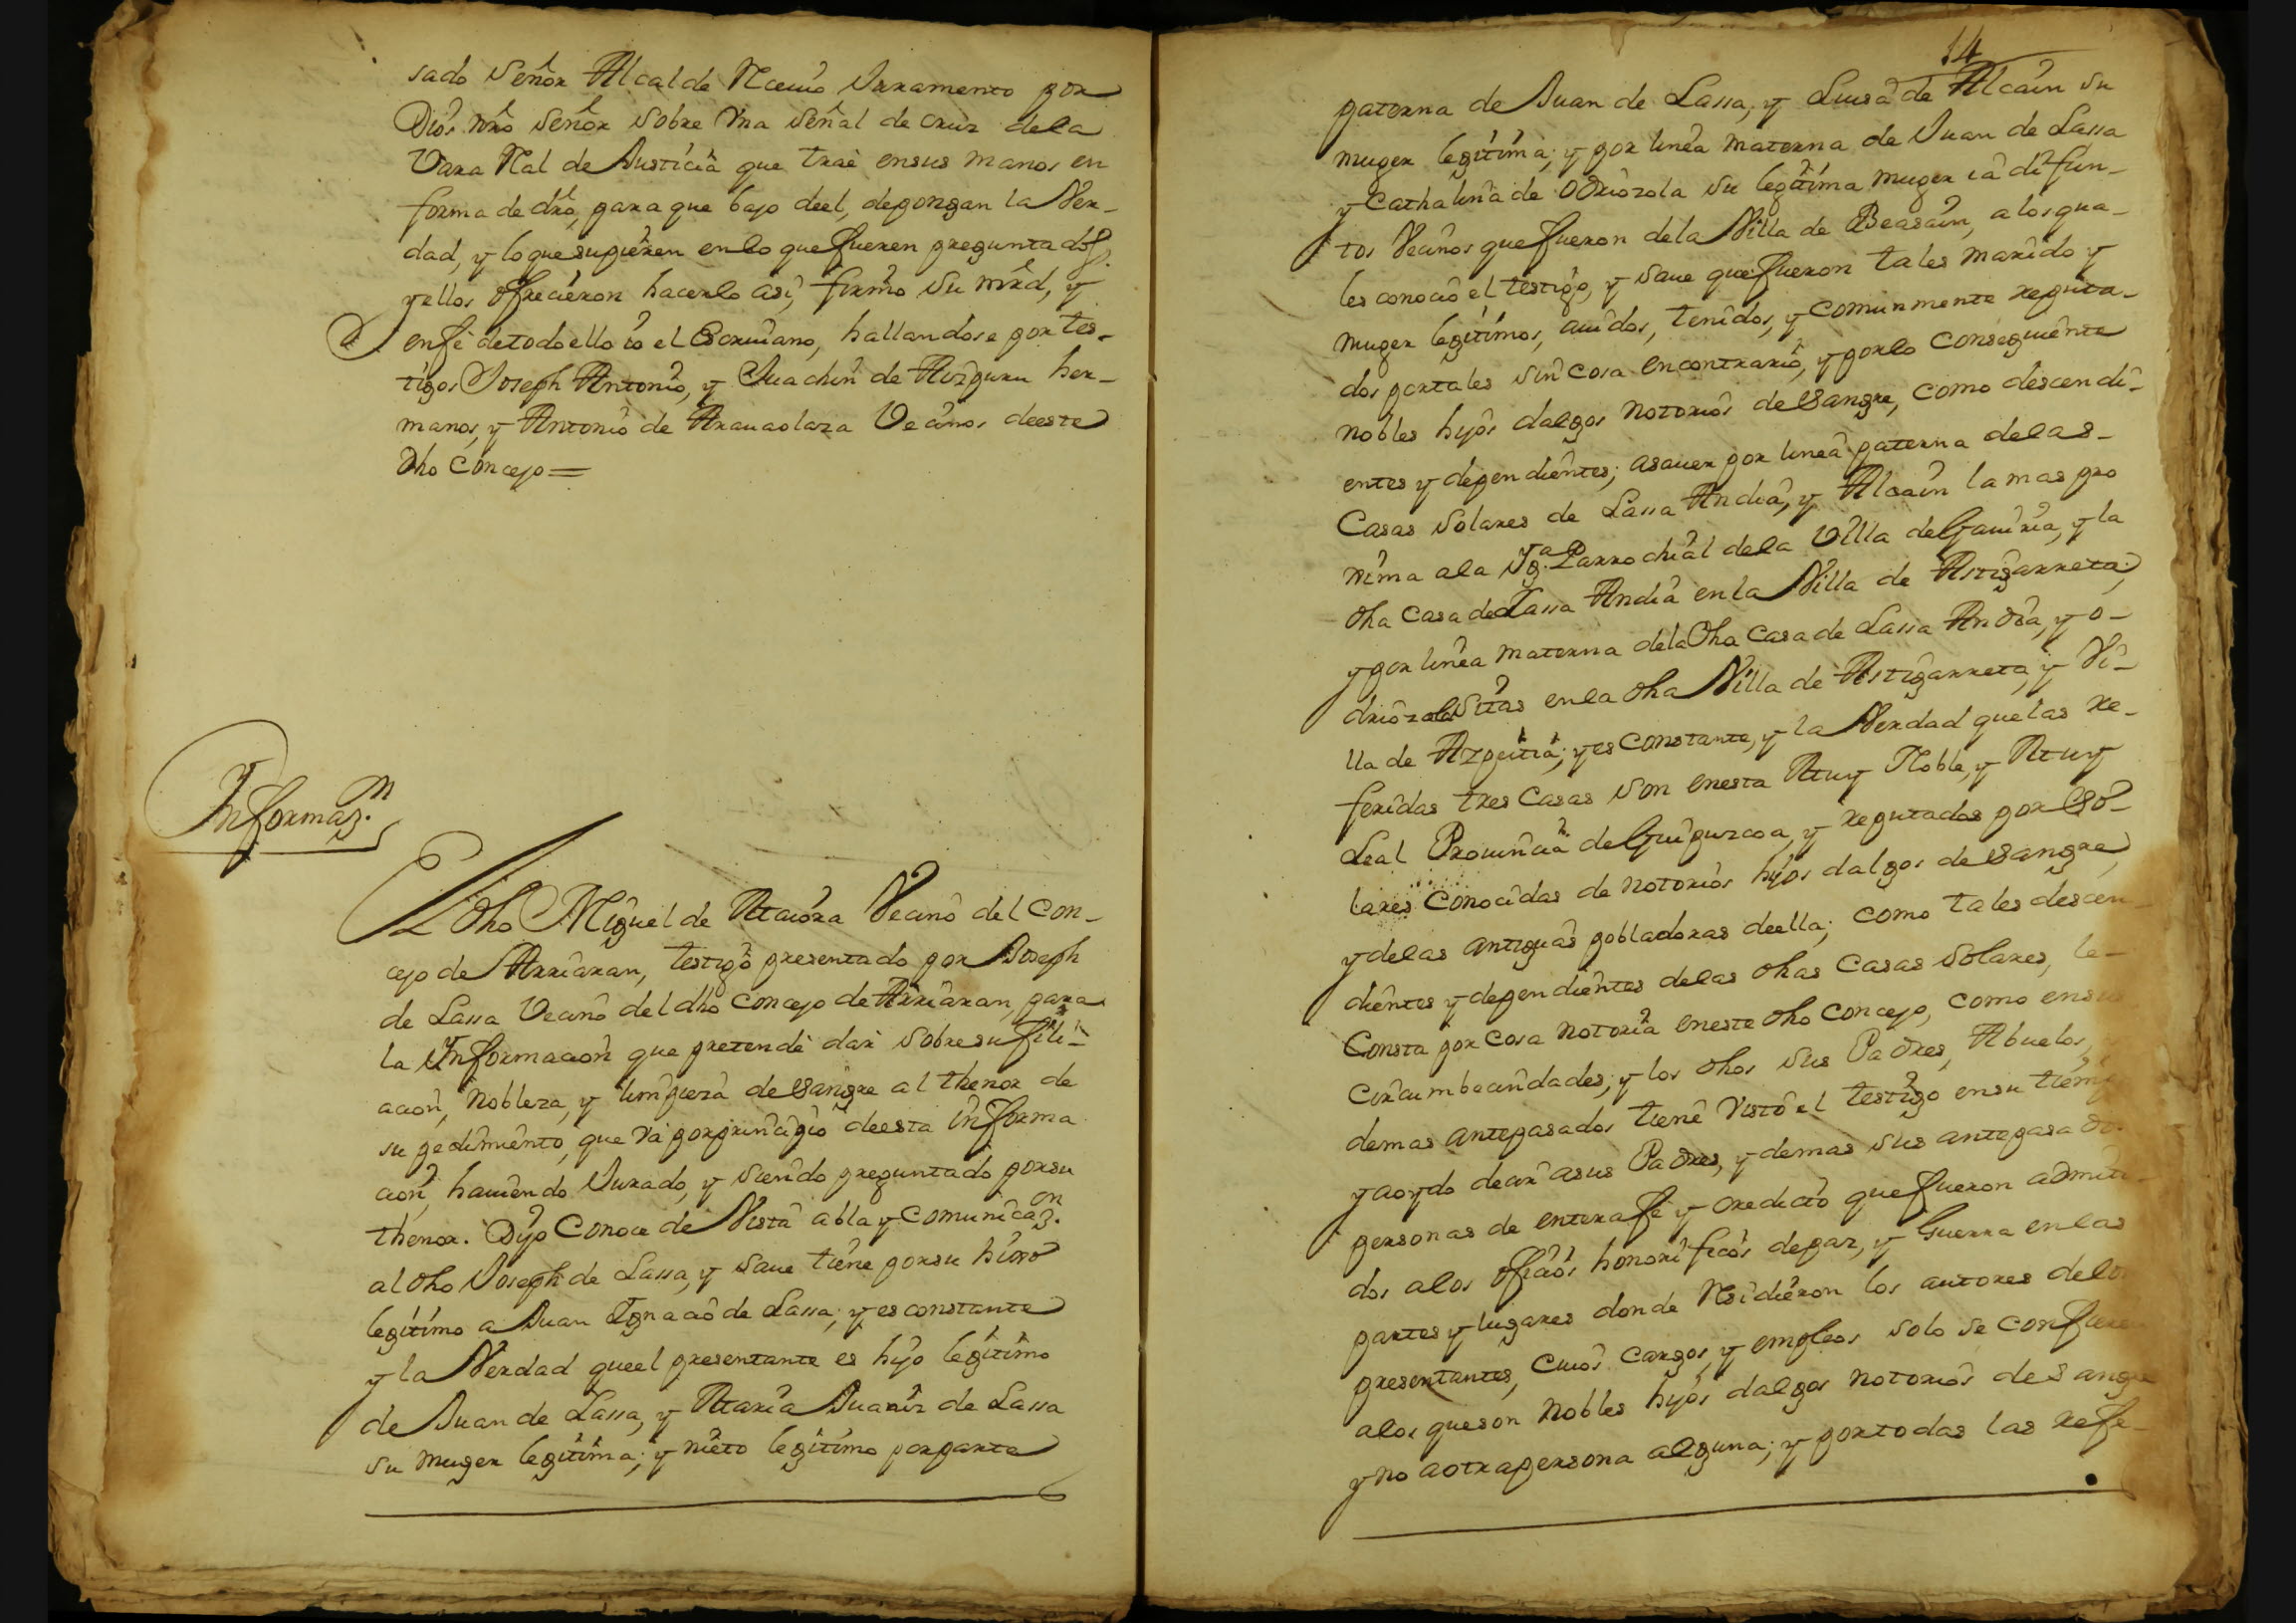 sado Señor Alcalde Recivio Juramento por
Dios nro Señor sobre Una Señal de cruz dela
Vara Real de Justicia que trae ensus manos en
forma de dro, para que bajo deel, depongan la Ver-
dad, y loque supieren enlo quefueren preguntados.
yellos ofrecieron hacerlo asi, firmo Su mrd, y
enfe detodoello io el Escrivano, hallandose por tes-
tigos Joseph Antonio, y Juachin de Aizguru her-
manos, y Antonio de Aravaolaza Vecinos deeste
dho Concejo=
Informaz.n
El dho Miguel de Maiora Vecino del Con-
cejo de Arriaran, testigo presentado por Joseph
de Lassa Vecino del dho Concejo de Arriaran, para
la Informacion que pretende dar sobresu fili-
acion, Nobleza, y limpieza de Sangre al thenor de
su pedimiento, que va porprincipio deesta informa
cion, haviendo Jurado, y siendo preguntado porsu
thenor. Dijo Conoce de Vista abla y comunicaz.on
al dho Joseph de Lassa, y save tiene porsu hijo
legitimo a Juan Ignacio de Lassa; y es constante
y la Verdad queel presentante es hijo legitimo
de Juan de Lassa, y Maria Juaniz de Lassa
su muger legitima; y nieto legitimo porparte
14
paterna de Juan de Lassa, y Luisa de Alcain su
muger legitima; y por linea materna de Juan de Lassa
y Cathalina de Odriozola su legitima muger ia difun-
tos Vecinos quefueron dela Villa de Beasain, alosqua-
les conocio el testigo, y save quefueron tales marido y
muger legitimos, avidos, tenidos, y comunmente reputa-
dos portales sin cosa encontrario, y porlo conseguiente
nobles hijos dalgos notorios de Sangre, como descendi-
entes y dependientes; asaver por linea paterna delas-
Casas Solares de Lassa Andia, y Alcain la mas pro
xima ala Yg.a Parrochial dela Villa de Gaviria, y la
dha casa de Lassa Andia enla Villa de Astigarreta,
y por linea materna dela dha casa de Lassa Andia, y o-
driozola sitas enla dha Villa de Astigarreta, y Vi-
lla de Azpeitia; y es constante, y la Verdad quelas re-
feridas tres casas son enesta Muy Noble, y Muy
Leal Provincia de Guipuzcoa, y reputadas por So-
lares conocidas de notorios hijos dalgos de Sangre,
y delas antiguas pobladoras deella; como tales descen-
dientes y dependientes delas dhas casas Solares, le-
Consta por cosa notoria eneste dho concejo, como ensus
circumbecindades, y los dhos sus Padres, Abuelos, y
demas antepasados tiene visto el testigo ensu tiempo
yaoydo decir asus Padres, y demas sus antepasados
personas de enterafe y credicto quefueron admiti-
dos alos oficios honorificos depaz, y Guerra enlas
partes y lugares donde Residieron los autores delos
presentantes, cuios cargos, y empleos solo se confieren
alos queson nobles hijos dalgos notorios de Sangre
y no aotrapersona alguna; y portodas las refe-